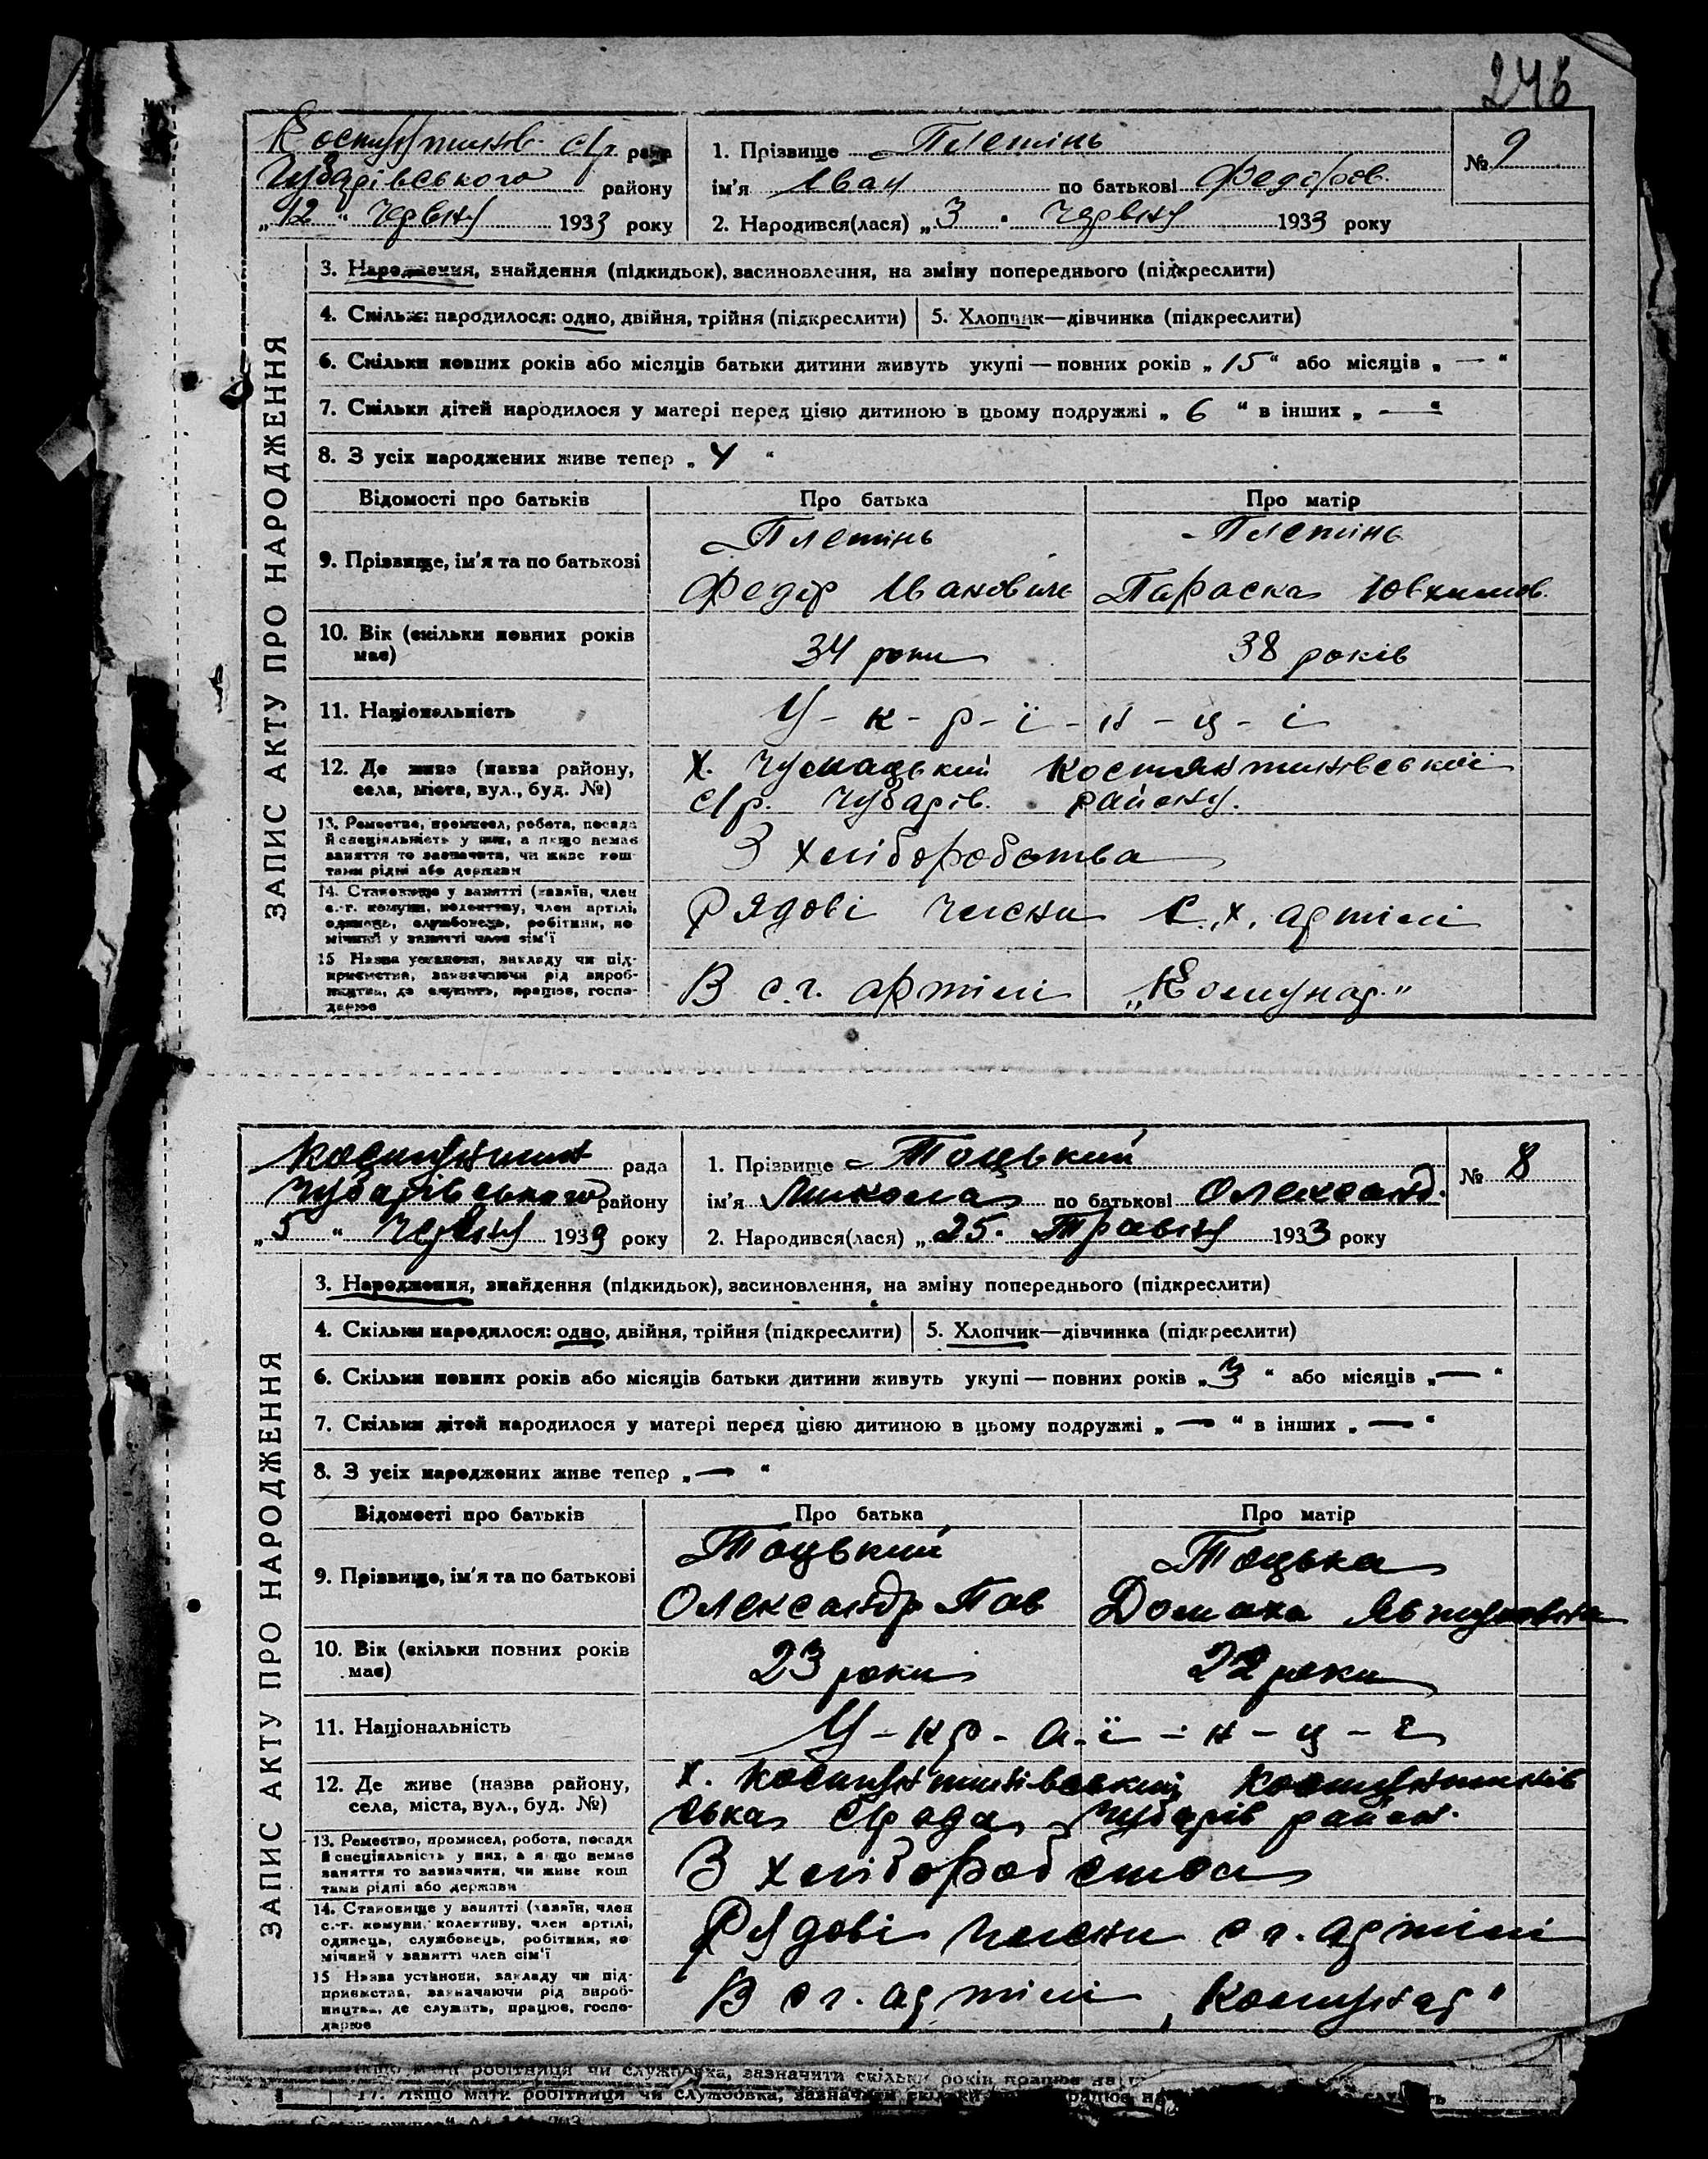 246
Костянтинів. с/р. рада
Чубарівського району
„12“ червня 1933 року
1. Прізвище Плетінь
ім'я Іван по батькові Федоров.
2. Народився(лася) „3“ червня 1933 року
№ 9
ЗАПИС АКТУ ПРО НАРОДЖЕННЯ
3. Народження, знайдення (підкидьок), засиновлення, на зміну попереднього (підкреслити)
4. Скільки народилося: одно, двійня, трійня (підкреслити) 5. Хлопчик—дівчинка (підкреслити)
6. Скільки повних років або місяців батьки дитини живуть укупі — повних років „15“ або місяців „—“
7. Скільки дітей народилося у матері перед цією дитиною в цьому подружжі „6“ в інших „—“
8. З усіх народжених живе тепер „4“
Відомості про батьків Про батька Про матір
9. Прізвище, ім'я та по батькові
Плетінь Плетінь
Федір Іванович Параска Ювхимов.
10. Вік (скільки повних років має)
34 роки 38 років
11. Національність
У-к-р-ї-н-ц-і
12. Де живе (назва району, села, міста, вул., буд. №)
х. Чумацький Костянтинівської
с/р. Чубарів. району.
13. Ремество, промисел, робота, посада
й спеціяльність у них, а якщо немає
заняття то зазначити, чи живе кош
тами рідні або держави
З хліборобства
14. Становище у занятті (хазяїн, член
с.-г. комуни, колективу, член артілі,
одинець, службовець, робітник, по
мічний у занятті член сім'ї
Рядові члени с.х. артілі
15 Назва установи, закладу чи під-
приємства, зазначаючи рід вироб-
ництва, де служить, працює, госпо-
дарює
В с.г. артілі „Комунар.”
Костянтин рада
Чубарівського району
„5“ Червня 1933 року
1. Прізвище Тоцький
ім'я Микола по батькові Олександ.
2. Народився(лася) „25. Травня 1933 року
№ 8
ЗАПИС АКТУ ПРО НАРОДЖЕННЯ
3. Народження, знайдення (підкидьок), засиновлення, на зміну попереднього (підкреслити)
4. Скільки народилося: одно, двійня, трійня (підкреслити) 5. Хлопчик—дівчинка (підкреслити)
6. Скільки повних років або місяців батьки дитини живуть укупі — повних років „3“ або місяців „—“
7. Скільки дітей народилося у матері перед цією дитиною в цьому подружжі „—“ в інших „—“
8. З усіх народжених живе тепер „—“
Відомості про батьків Про батька Про матір
9. Прізвище, ім'я та по батькові
Тоцький Тоцька
Олександр Пав Домаха
10. Вік (скільки повних років має)
23 роки 22 роки
11. Національність
У-кр-а-ї-н-ц-і
12. Де живе (назва району, села, міста, вул., буд. №)
х. Костянтинівський, Костянтинів
ська с/рада, Чубарів район.
13. Ремество, промисел, робота, посада
й спеціяльність у них, а якщо немає
заняття то зазначити, чи живе кош
тами рідні або держави
З хліборобства
14. Становище у занятті (хазяїн, член
с.-г. комуни, колективу, член артілі,
одинець, службовець, робітник, по
мічний у занятті член сім'ї
Рядові члени с г. артілі
15 Назва установи, закладу чи під-
приємства, зазначаючи рід вироб-
ництва, де служить, працює, госпо-
дарює
В с г. артілі „Комунар”
мати робітниця чи службовка, зазначити скільки років працює на
17. Якщо мати робітниця чи службовка, зазначити скільки